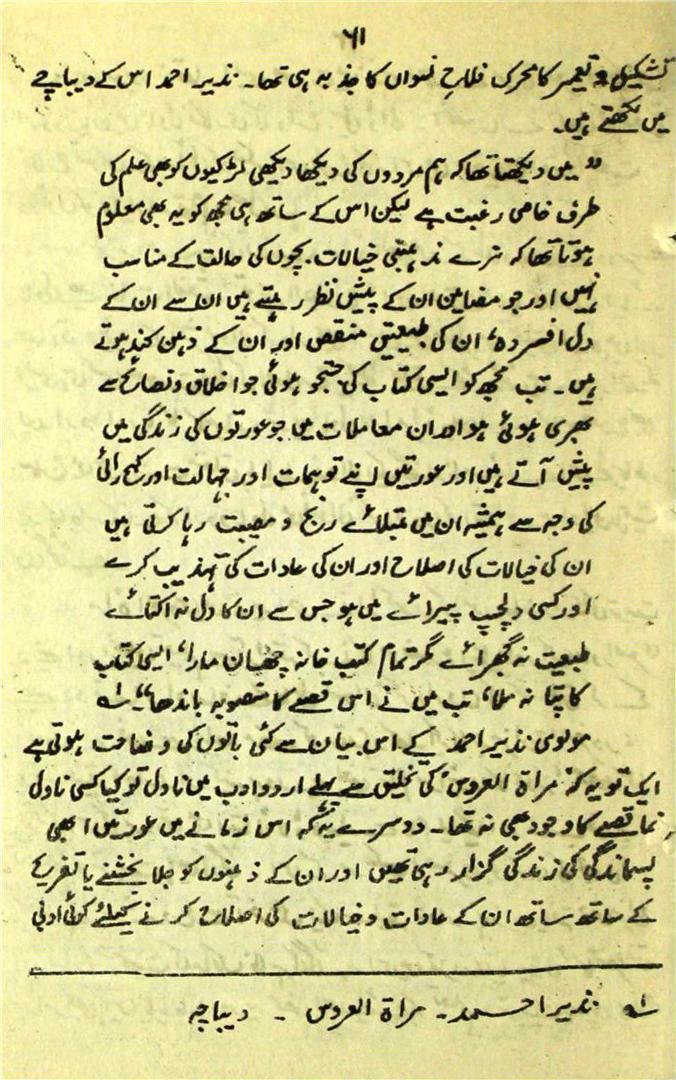 ۶۱
تشکیل و تعمیر کا محرک فلاحِ نسواں کا جذبہ ہی تھا۔ نذیر احمد اس کے دیباچے
میں لکھتے ہیں۔
" میں دیکھتا تھا کہ ہم مردوں کی دیکھا دیکھی لڑکیوں کو بھی علم کی
طرف خاص رغبت ہے لیکن اس کے ساتھ ہی مجھ کو یہ بھی معلوم
ہوتا تھا کہ نرے مذہبی خیالات بچوں کی حالت کے مناسب
نہیں اور جو مضامین ان کے پیش نظر رہتے ہیں ان سے ان کے
دل افسردہ، ان کی طبیعتیں منقص اور ان کے ذہن کند ہوتے
ہیں۔ تب مجھ کو ایسی کتاب کی جستجو ہوئی جو اخلاق و نصائح سے
بھری ہوئی ہو اور ان معاملات میں جو عورتوں کی زندگی میں
پیش آتے ہیں اور عورتیں اپنے توہمات اور جہالت اور کج رائی
کی وجہ سے ہمیشہ ان میں مبتلائے رنج و مصیبت رہا کرتی ہیں
ان کی خیالات کی اصلاح اور ان کی عادات کی تہذیب کرے
اور کسی دلچسپ پیرائے میں ہو جس سے ان کا دل نہ اکتائے
طبیعت نہ گھبرائے مگر تمام کتب خانہ چھان مارا، ایسی کتاب
کا پتا نہ ملا، تب میں نے اس قصے کا منصوبہ باندھا"۔ ؎۱
مولوی نذیر احمد کے اس بیان سے کئی باتوں کی وضاحت ہوتی ہے
ایک تو یہ کہ 'مراۃ العروس' کی تخلیق سے پہلے اردو ادب میں ناول تو کیا کسی ناول
نما قصے کا وجود بھی نہ تھا۔ دوسرے یہ کہ اس زمانے میں عورتیں ابھی
پسماندگی کی زندگی گزار رہی تھیں اور ان کے ذہنوں کو جلا بخشنے یا تفریح
کے ساتھ ساتھ ان کے عادات و خیالات کی اصلاح کرنے کیلئے کوئی ادبی
؎۱ نذیر احمد۔ مراۃ العروس ۔ دیباچہ